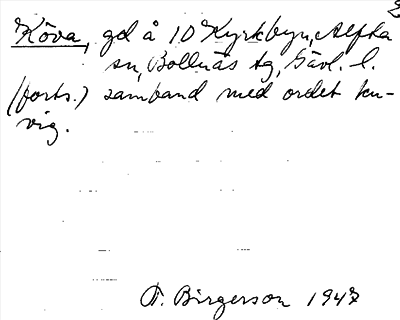 2
Köva, gd å 10 Kyrkbyn, Alfta
sn, Bollnäs tg, Gävl. l.
(forts.) samband med ordet ku-
vig.
T. Birgerson 1947